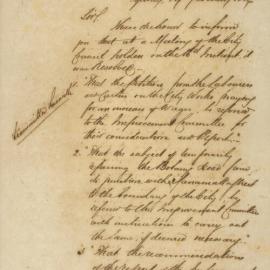 Sir,
I have the honor to inform
you that at a Meeting of the City
Council holden on the Instant it
was Resolved
1. "That the Petition from the Labourers
and Carters on the City Works praying
for an increase of Wages be referred
to the Improvement Committee for
their consideration and Report."
2. "That the subject of temporarily
repairing the Botany Road from
its junction with Street
to the boundary of the City, be
referred to the Improvement Committee
with instruction to carry out
the same, if deemed necessary."
3. "That the recommendations
of the Report of the